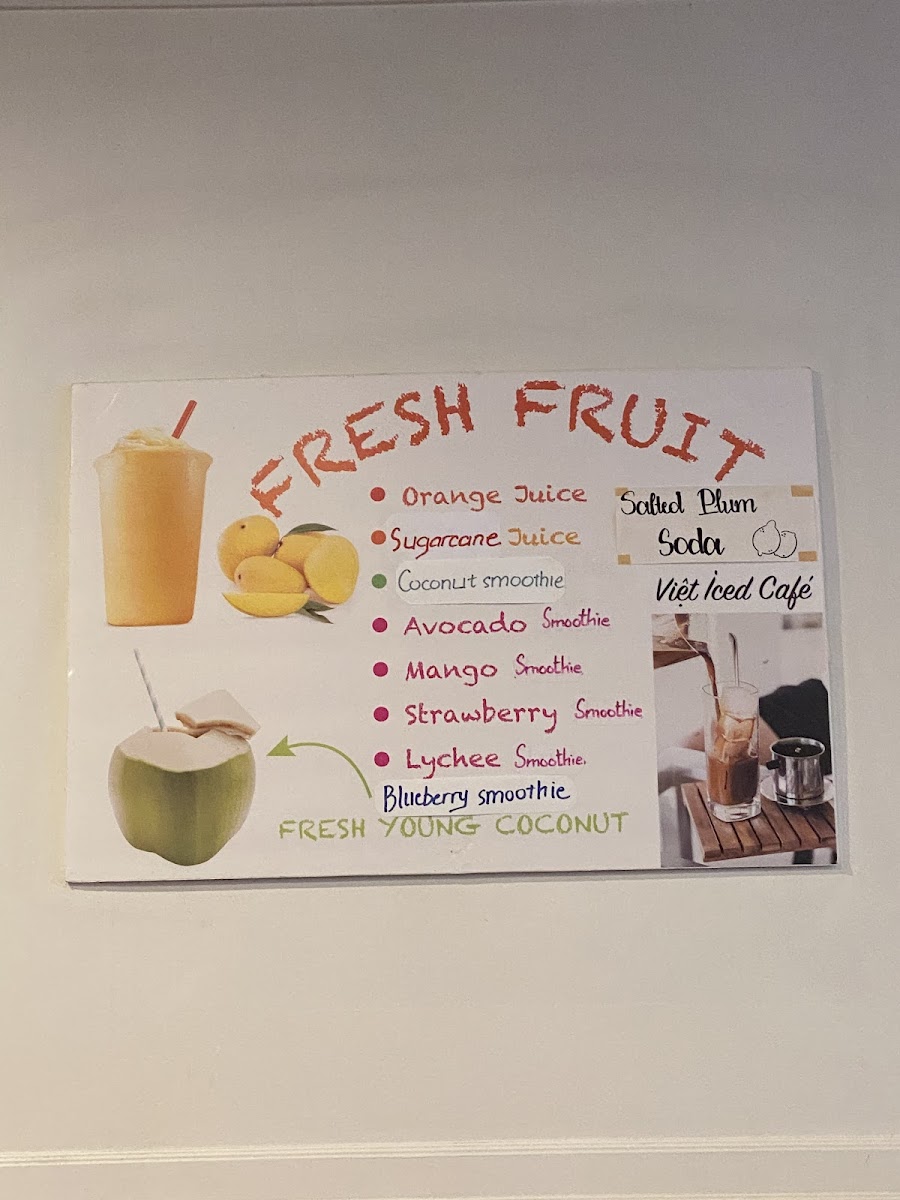 FRESH FRUIT
Orange Juice
Sugarcane Juice
Coconut smoothie
Avocado Smoothie
Mango Smoothie
Strawberry Smoothie
Lychee Smoothie.
Blueberry smoothie
FRESH YOUNG COCONUT
Salted Plum
Soda
Việt Iced Café